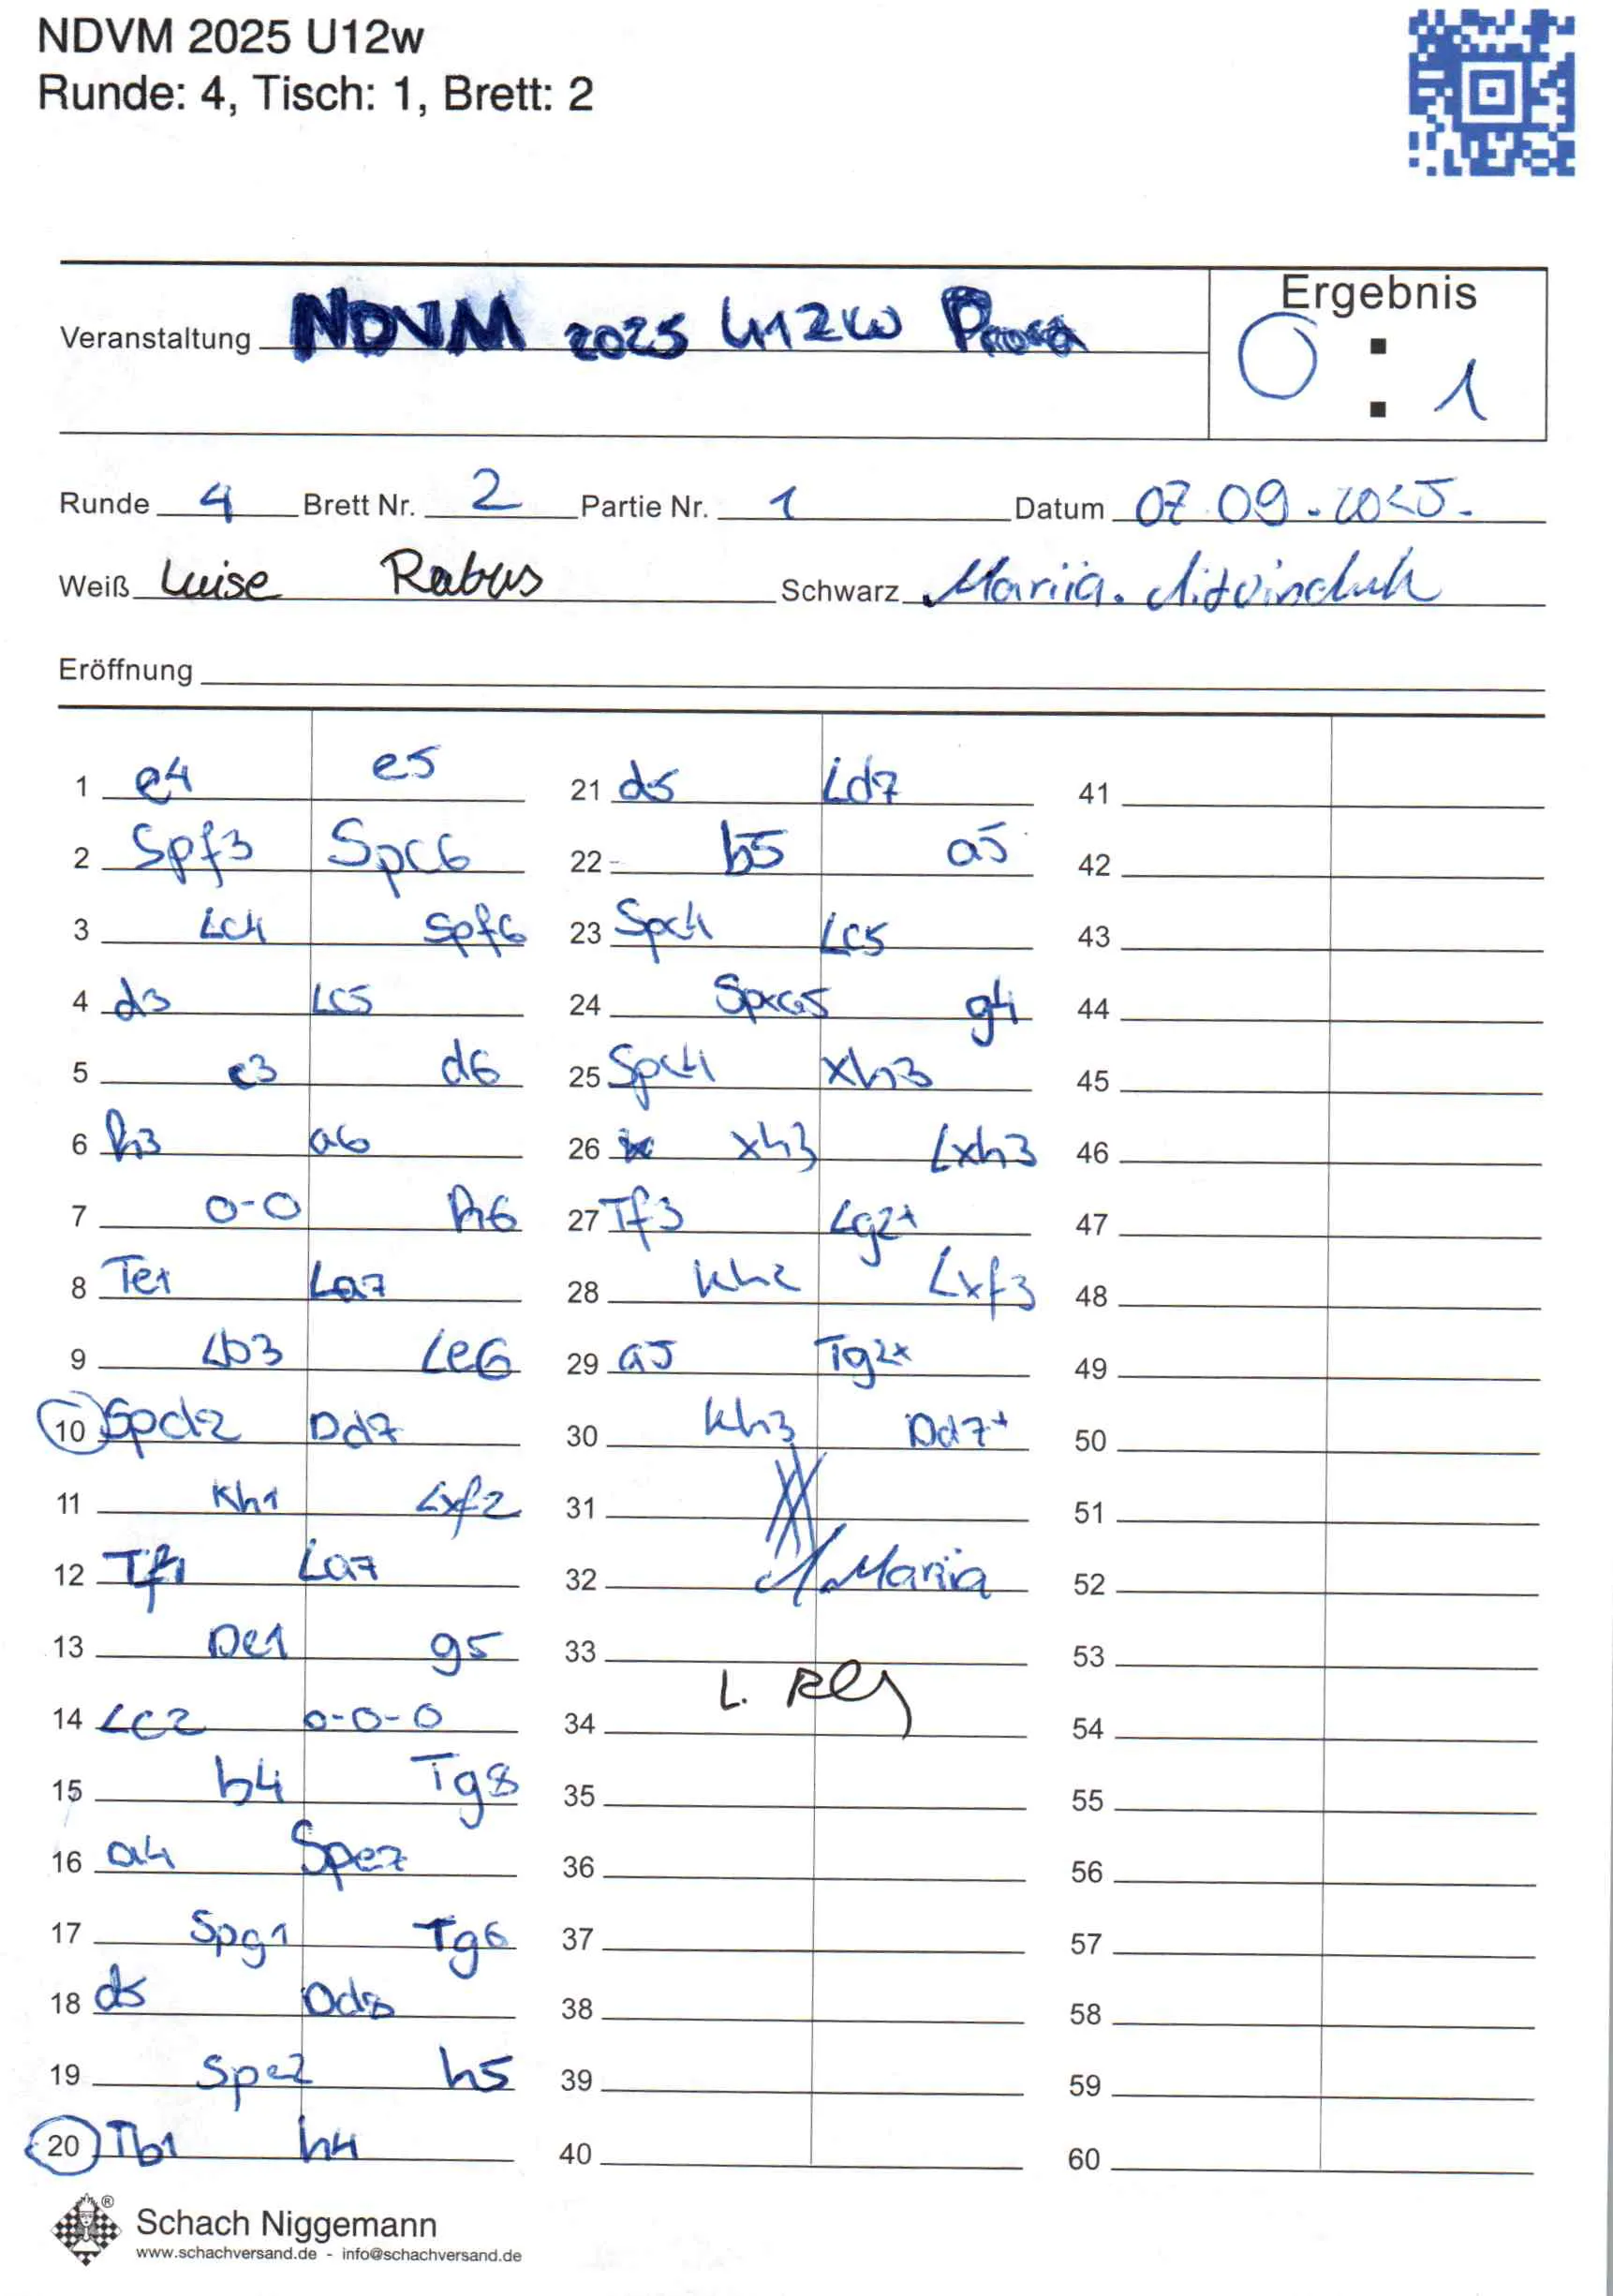 NDVM 2025 U12w
Runde: 4, Tisch: 1, Brett: 2
Ergebnis
Veranstaltung NDVM 2025 U12w
0 : 1
Runde 4 Brett Nr. 2 Partie Nr. 1 Datum 07.09.2025.
Weiß Luise Rabus Schwarz Mariia.
Eröffnung
1 e4 e5
2 Spf3 Spc6
3 Lc4 Spf6
4 d3 Lc5
5 c3 d6
6 h3 a6
7 0-0 h6
8 Te1 La7
9 Lb3 Le6
10 Spd2 Dd7
11 Kh1 Lxf2
12 Tf1 La7
13 De1 g5
14 Lc2 0-0-0
15 b4 Tg8
16 a4 Spe7
17 Spg1 Tg6
18 d5 Dd8
19 Spe2 h5
20 Tb1 h4
21 d5 Ld7
22 b5 a5
23 Spc4 Lc5
24 Spxa5 g4
25 Spc4 xh3
26 xh3 Lxh3
27 Tf3 Lg2+
28 Kh2 Lxf3
29 a5 Tg2+
30 Kh3 Dd7+
31
32 Mariia
33
34 L.
35
36
37
38
39
40
41
42
43
44
45
46
47
48
49
50
51
52
53
54
55
56
57
58
59
60
Schach Niggemann
www.schachversand.de - info@schachversand.de